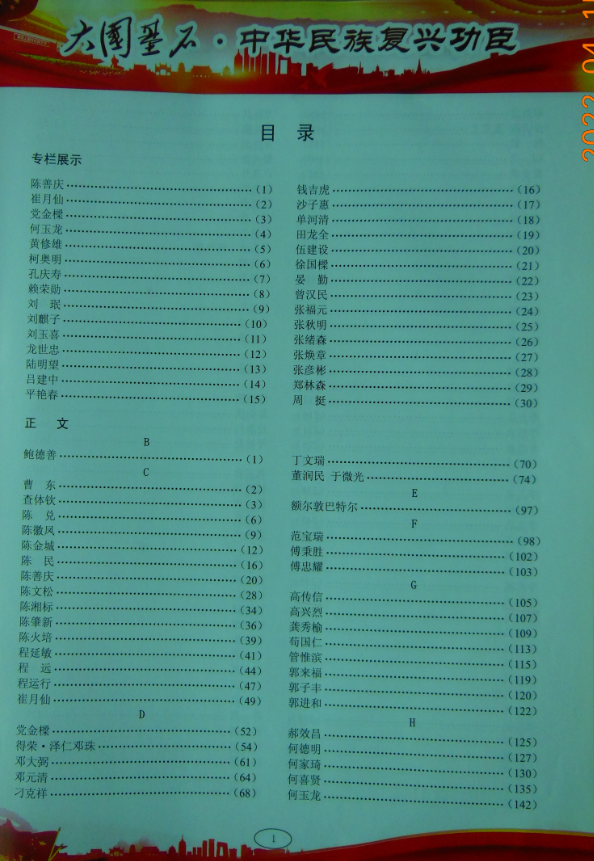 大国基石·中华民族复兴功臣
2022 04 1
目 录
专栏展示
陈善庆(1)
崔月仙(2)
党金樑(3)
何玉龙(4)
黄修雄(5)
柯奥明(6)
孔庆寿(7)
赖荣勋(8)
刘 珉(9)
刘麒子(10)
刘玉喜(11)
龙世忠(12)
陆明望(13)
吕建中(14)
平艳春(15)
钱吉虎(16)
沙子惠(17)
单河清(18)
田龙全(19)
伍建设(20)
徐国樑(21)
晏 勤(22)
曾汉民(23)
张福元(24)
张秋明(25)
张绪森(26)
张焕章(27)
张彦彬(28)
郑林森(29)
周 挺(30)
正 文
B
鲍德善(1)
C
曹 东(2)
查体钦(3)
陈 兑(6)
陈徽风(9)
陈金城(12)
陈 民(16)
陈善庆(20)
陈文松(28)
陈湘标(34)
陈肇新(36)
陈火培(39)
程延敏(41)
程 远(44)
程运行(47)
崔月仙(49)
D
党金樑(52)
得荣·泽仁邓珠(54)
邓大弼(61)
邓元清(64)
刁克祥(68)
丁文瑞(70)
董润民 于微光(74)
E
额尔敦巴特尔(97)
F
范宝瑞(98)
傅秉胜(102)
傅忠耀(103)
G
高传信(105)
高兴烈(107)
龚秀榆(109)
苟国仁(113)
管惟滨(115)
郭来福(119)
郭子丰(120)
郭进和(122)
H
郝效昌(125)
何德明(127)
何家琦(130)
何喜贤(135)
何玉龙(142)
1